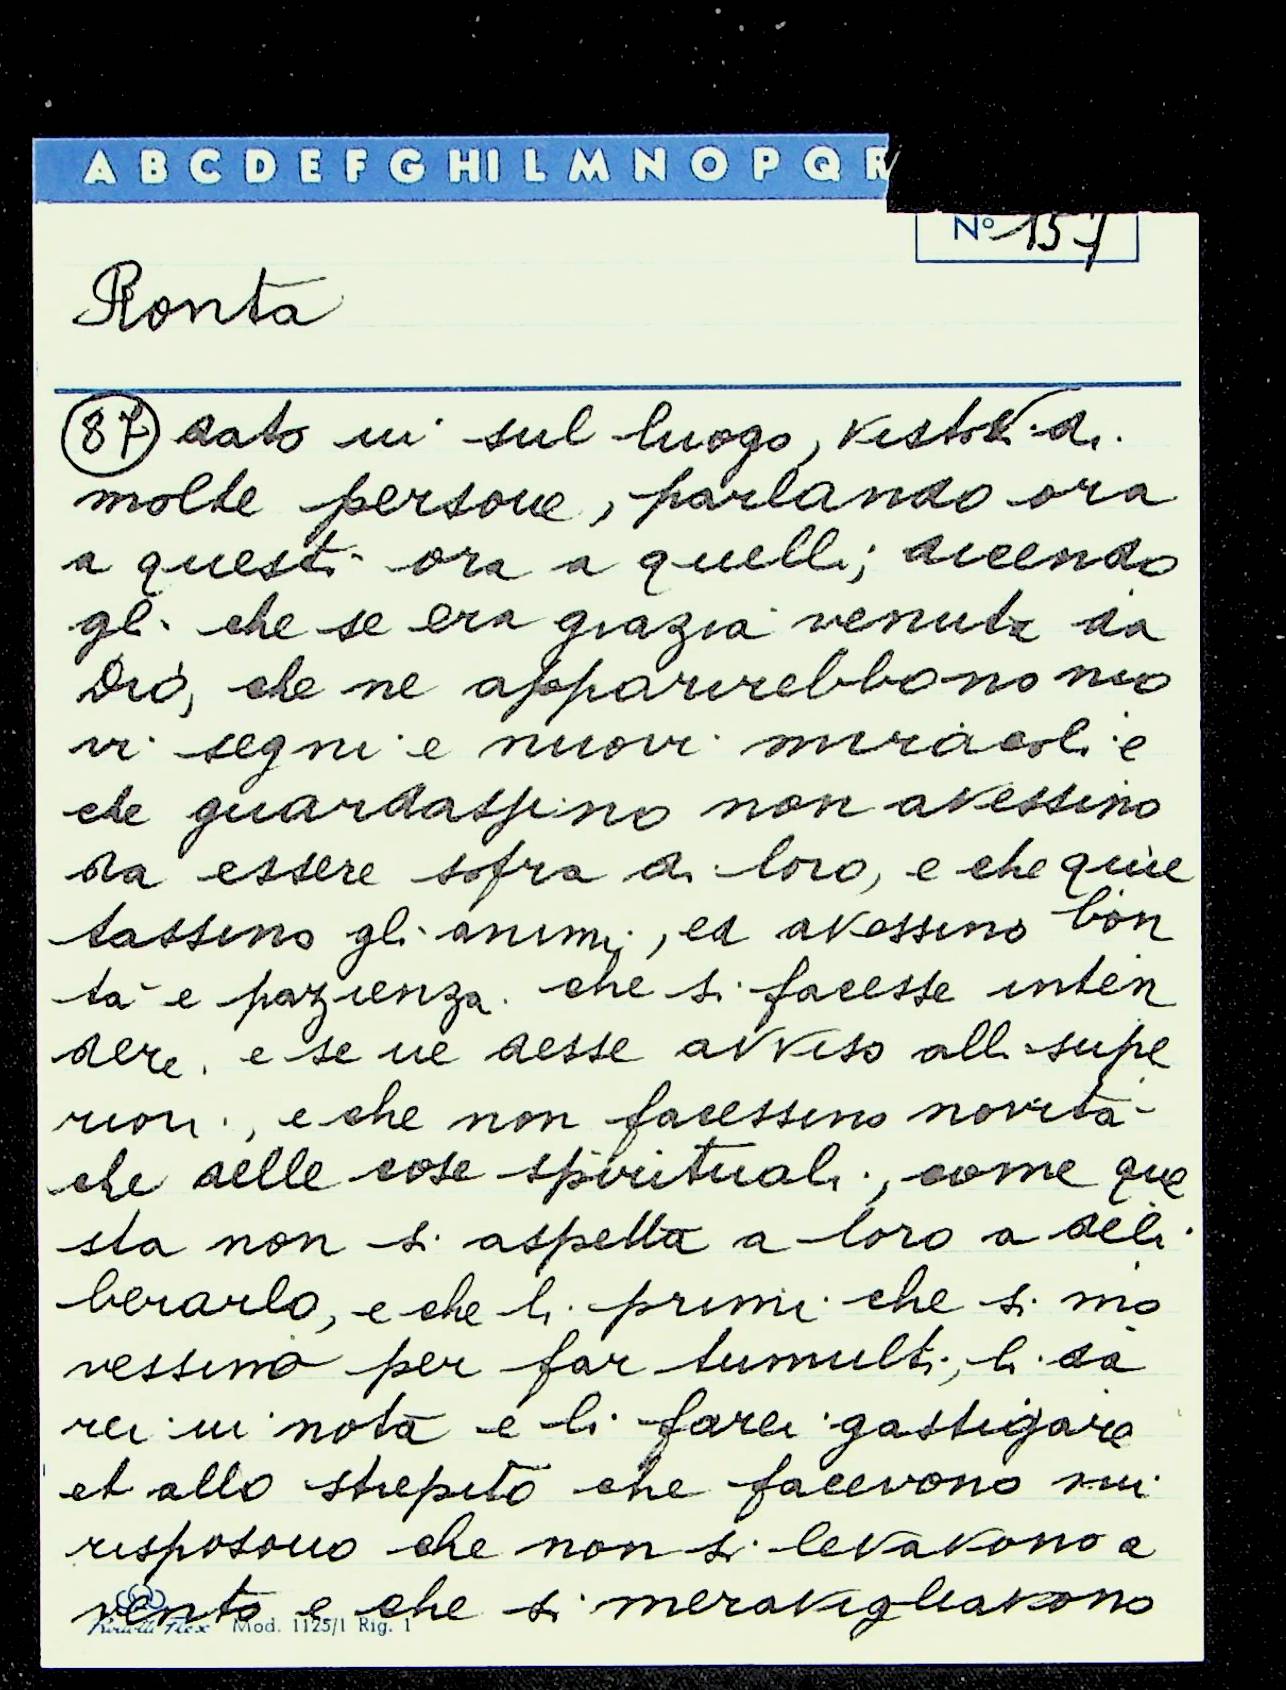 A B C D E F G H I L M N O P Q R
N° 157
Ronta
87 dato in sul luogo, vistovi di
molte persone, parlando ora
a questi ora a quelli; dicendo
gli che se era grazia venuta da
Dio, che ne apparirebbono nuo
vi segni e nuovi miracoli e
che guardassino non avessino
da essere sopra di loro, e che quie
tassino gli animi, ed avessino bon
tà e pazienza. che si facesse inten
dere, e se ne desse avviso alli supe
riori, e che non facessino novità
che delle cose spirituali, come que
sta non si aspetta a loro a deli
berarlo, e che li primi che si mo
vessino per far tumulti, li da
rei in nota e li farei gastigare
et allo strepito che facevono mi
risposono che non si levavono a
vento e che si meravigliavono
Mod. 1125/1 Rig. 1